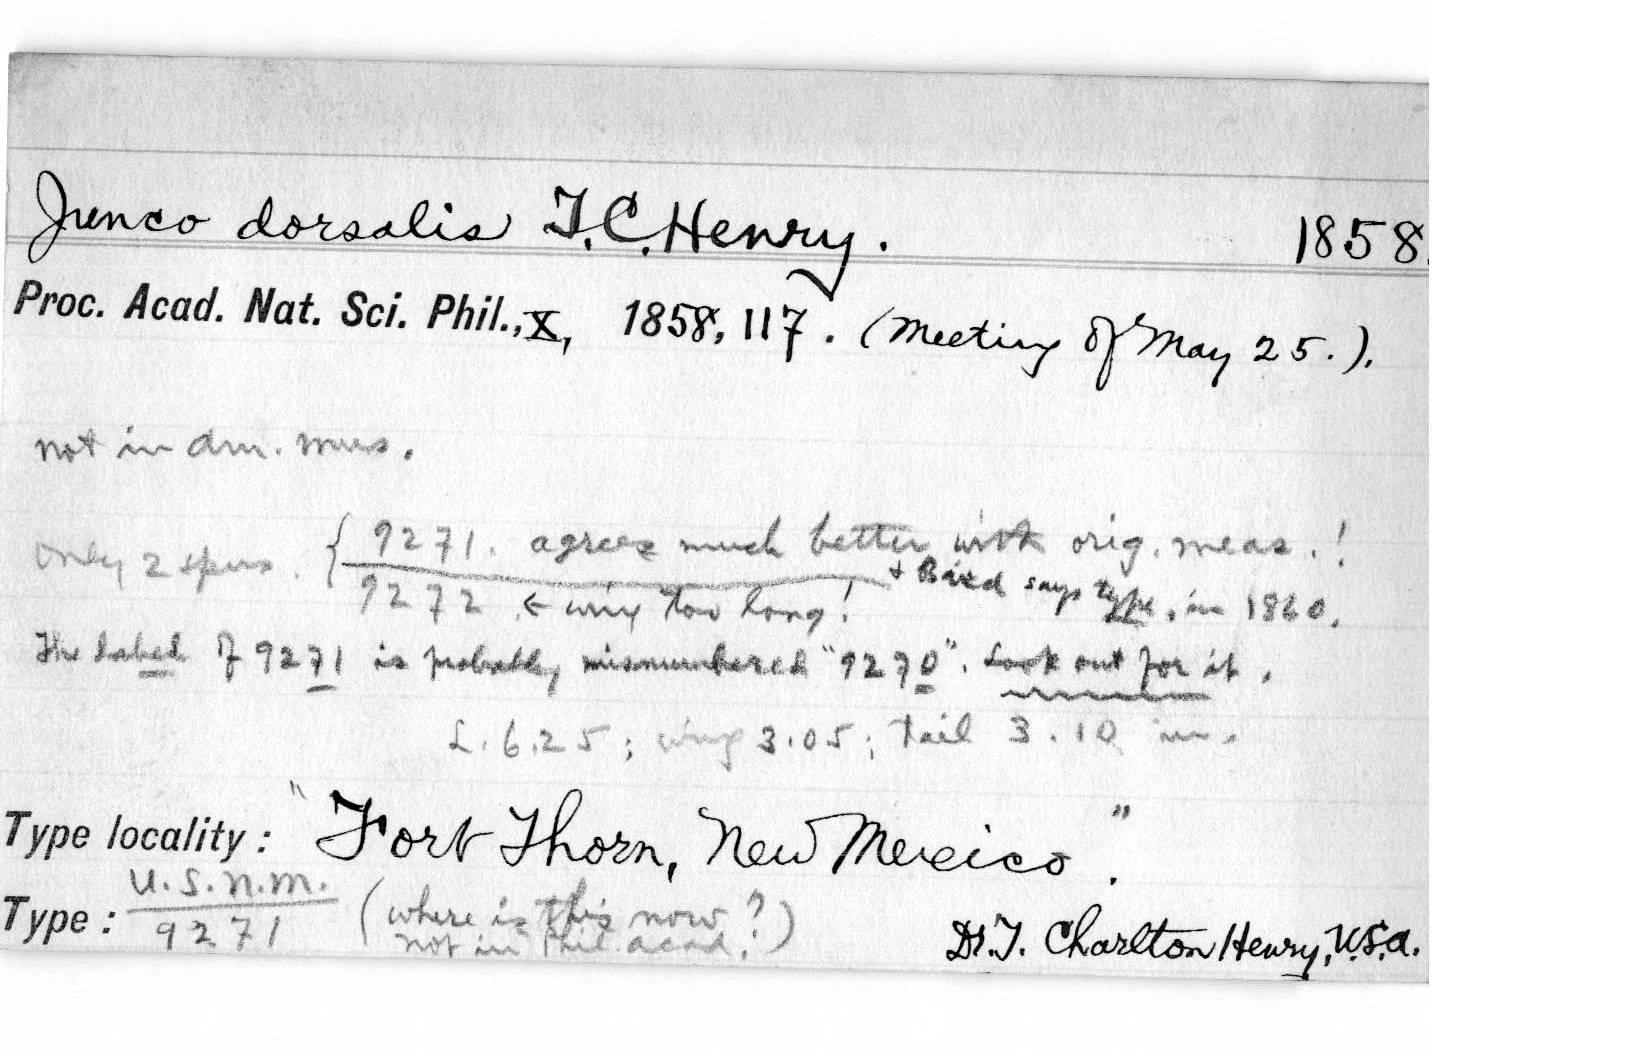 Junco dorsalis T.C. Henry. 1858.
Proc. Acad. Nat. Sci. Phil., X, 1858, 117. (Meeting of May 25.).
not in Am. Mus.
only 2 spms. { 9271. agrees much better with orig. meas.!
+ Baird says type, in 1860.
9272 ← wing too long!
The label of 9271 is probably mismumbered "9270". Look out for it.
L. 6.25; wing 3.05; tail 3.10 in.
Type locality: "Fort Thorn, New Mexico".
Type: U.S.N.M. 9271 (where is this now?
not in Phil. Acad.?)
Dr. T. Charlton Henry, U.S.A.